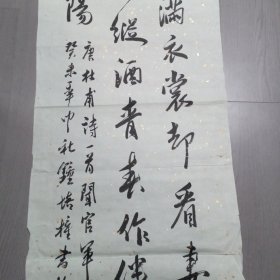 滿衣裳却看妻
縱酒青春作伴
陽
唐杜甫詩一首聞官軍
癸未年中秋